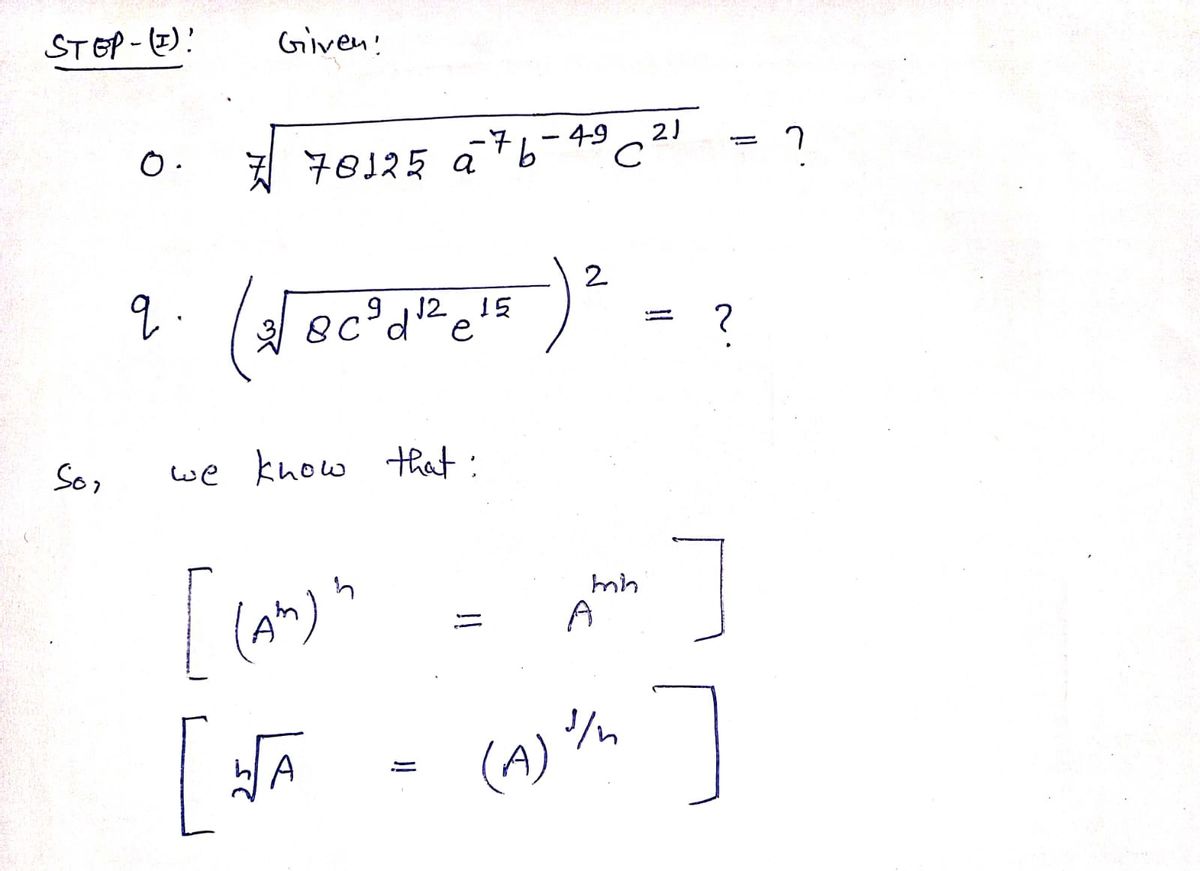 STEP-(I): Given:
o. ⁷√(78125 a⁻⁷b⁻⁴⁹c²¹) = ?
q. (³√(8c⁹d¹²e¹⁵))² = ?
So, we know that:
[(Aᵐ)ⁿ = Aᵐⁿ]
[ⁿ√A = (A)¹/ⁿ]